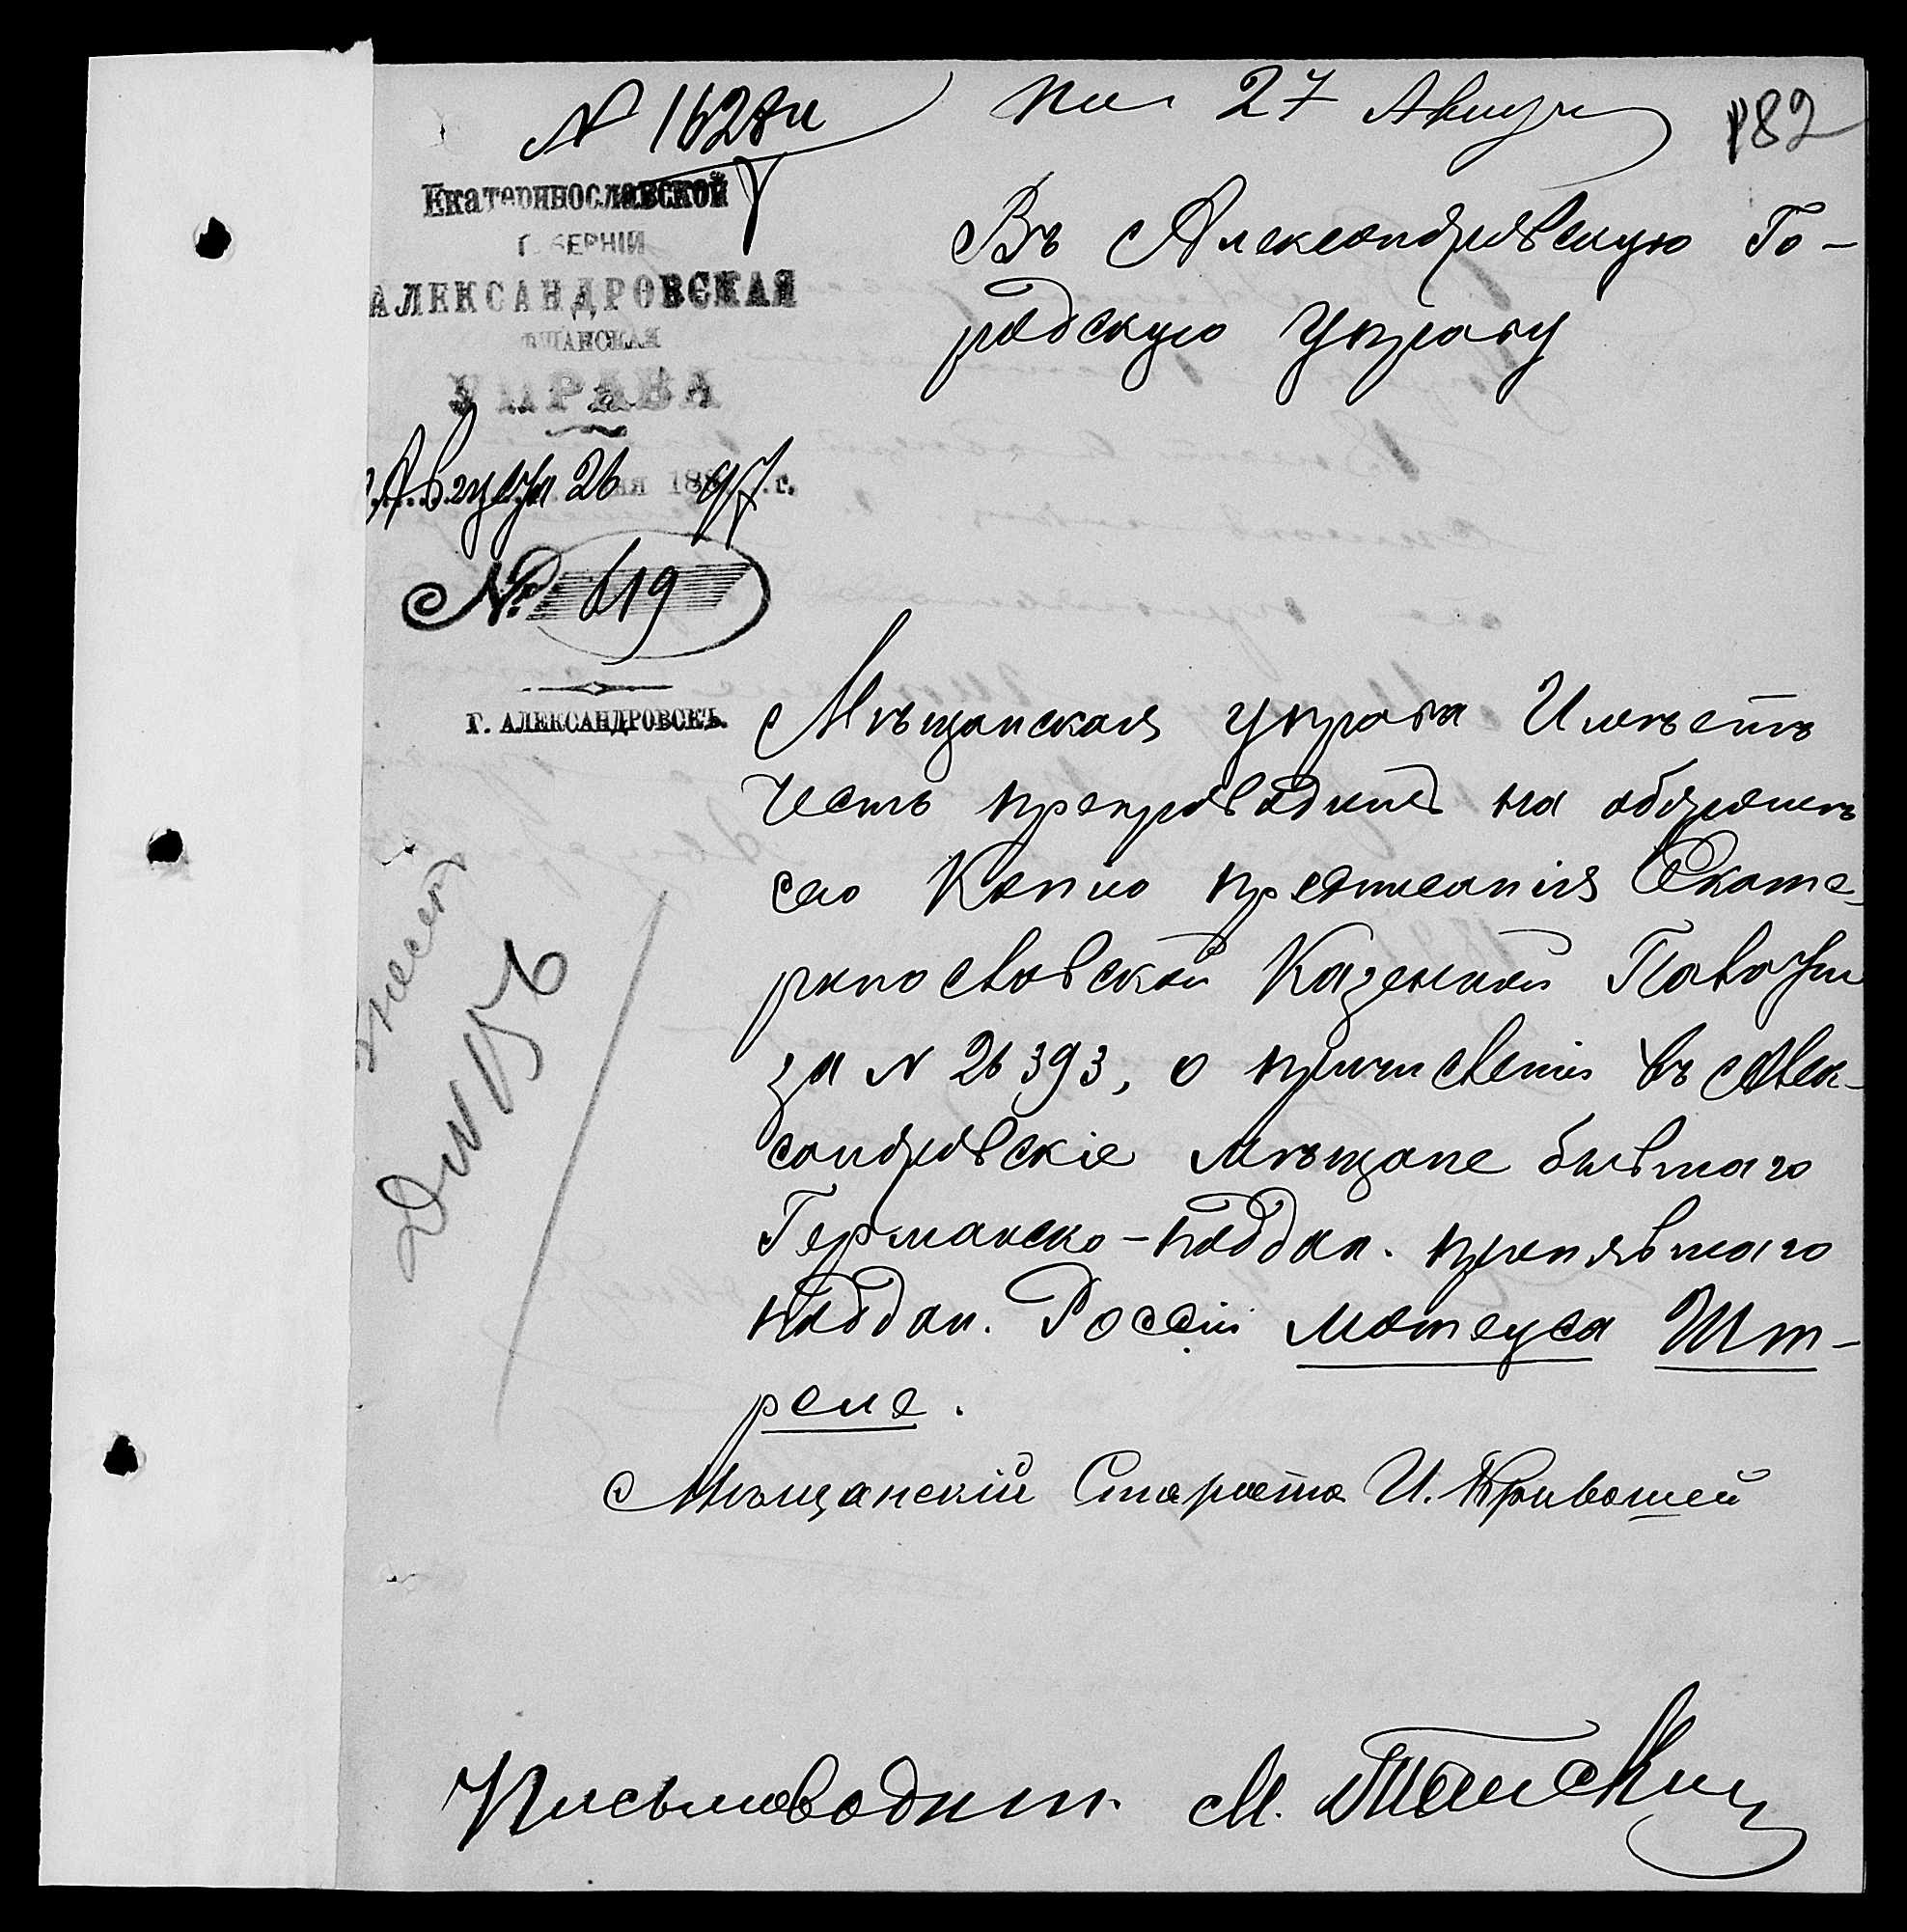 № 1628
27 Августа
182
Екатеринославской
ГУБЕРНІИ
АЛЕКСАНДРОВСКАЯ
МѢЩАНСКАЯ
УПРАВА
Августа 26 дня 1897 г.
№ 619
г. АЛЕКСАНДРОВСКЪ.
Въ Александровскую Го-
родскую Управу
Мѣщанская управа Имѣетъ
честь препроводить на
сію Копію предписанія Екате-
ринославской Казенной Палаты
за N 26393, о причисленіи въ Алек-
сандровскіе мѣщане бывшаго
Германско-поддан. принявшаго
поддан. Россіи Матеуса Шт-
реле.
Мѣщанскій Староста И. Кривошей
Письмоводит. М.